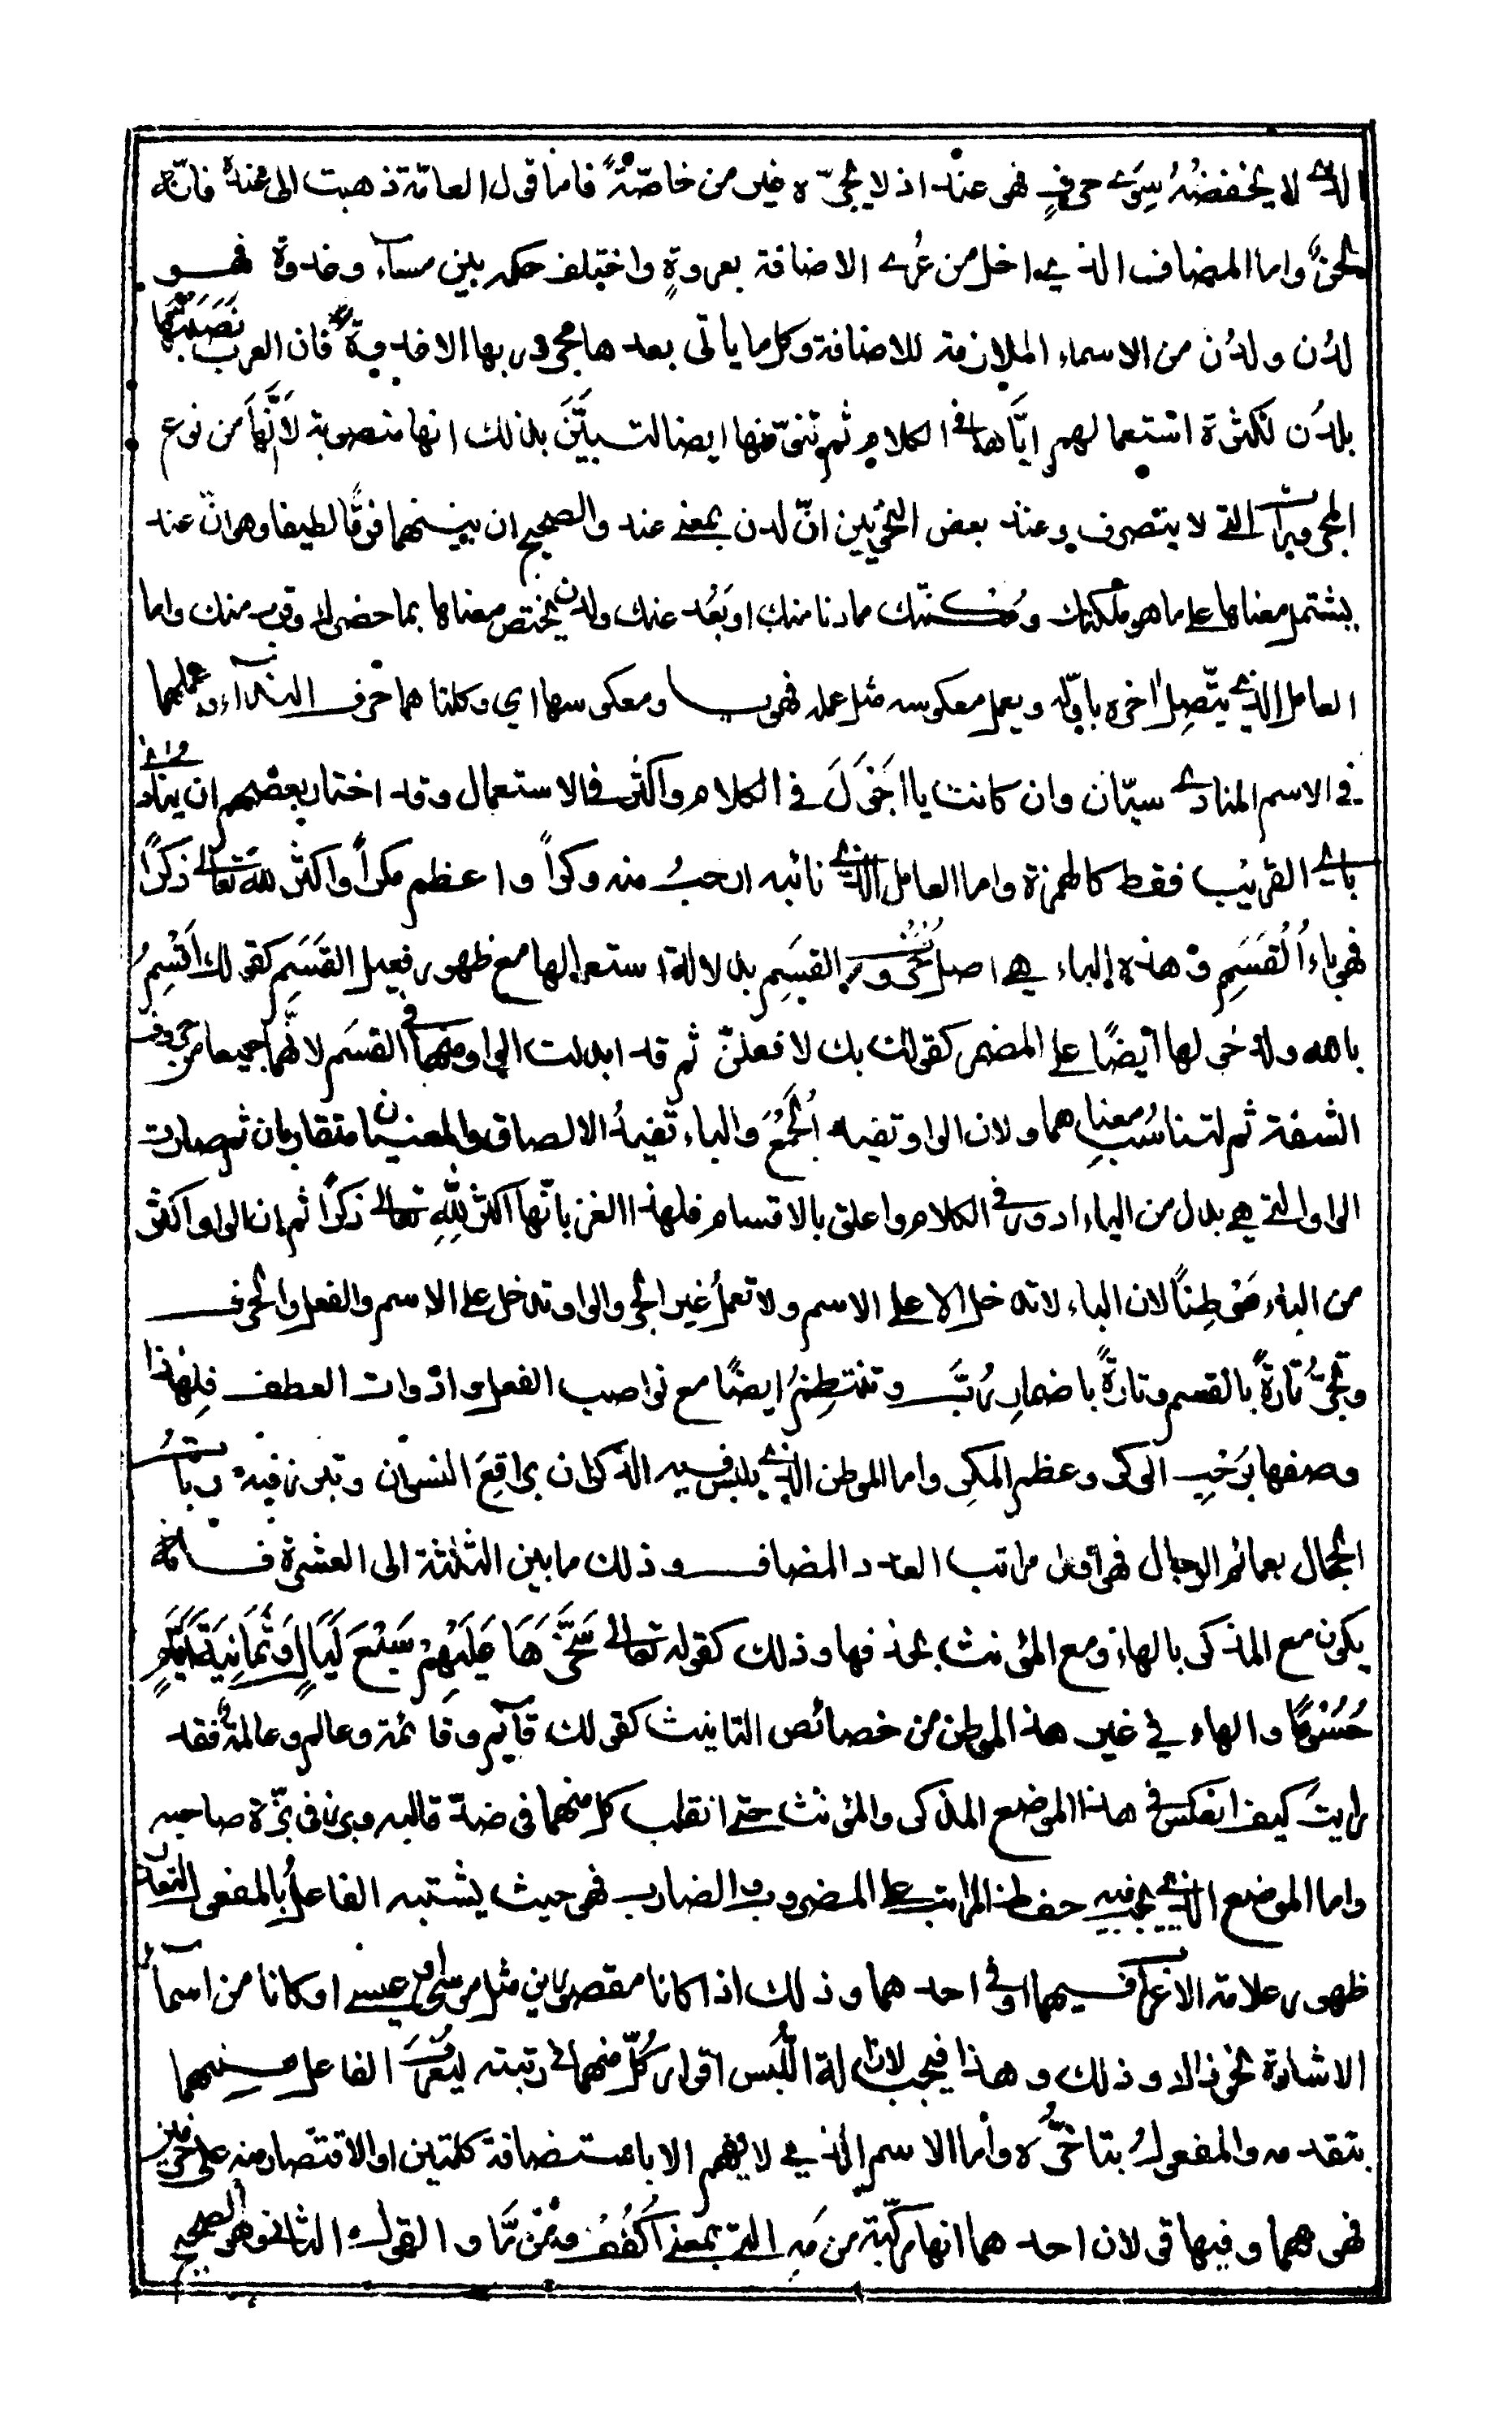 الذي لا يخفضُهُ سِوَى حرفٍ فهي عند اذ لا يجرّه غير من خاصّةً فاما قول العامّة ذهبت الى عنده فانّه
لحنٌ واما المضاف الذي اخل من عُرى الاضافة بعروةٍ واختلف حكمه بين مساء وغدوة فهو
لدُن ولدُن من الاسماء الملازمة للاضافة وكل ما ياتى بعدها مجرور بها الا غدوةً فان العرب نَصَبَتْها
بلدُن لكثرة استعمالهم ايّاها في الكلام ثم تنوّنها ايضا لتبيّن بذلك انها منصوبة لا انّها من نوع
المجرورات التي لا ينصرف وعند بعض النحويين انّ لدن بمعنى عند والصحيح ان بينهما فرقًا لطيفا وهو انّ عند
يشتمل معناها على ما هو ملكتك ومُكنتك مما دنا منك او بَعُد عنك ولدن يختص معناها بما حضرك وقرب منك واما
العامل الذي يتّصِل اخره باوّله ويعمل معكوسه مثل عمله فهو يا ومعكوسها اي وكلتاهما حرف النداء وعملهما
في الاسم المنادى سيّان وان كانت يا اجَوَلَ في الكلام واكثر في الاستعمال وقد اختار بعضهم ان ينادى
باي القريب فقط كالهمزة واما العامل الذي نائبه ارحبُ منه وكرًا واعظم مكرًا واكثر لله تعالى ذكرًا
فهو باءُ القَسَمِ وهذه الباء هي اصل حروف القسَمِ بدلالة استعمالها مع ظهور فعل القَسَمِ كقولك اُقسِمُ
بالله ولدخولها ايضًا على المضمر كقولك بك لافعلنّ ثم قد ابدلت الواو منها في القسَم لانّهما جميعا من حروف
الشفة ثم لتناسُبِ معناهما ولان الواو تفيد الجمْعَ والباء تفيدُ الالصاق والمعنيان متقاربان ثم صارت
الواو التي هي بدل من الباء ادور في الكلام واعلق بالاقسام فلهذا الغز بانّها اكثر لِلّهِ تعالى ذكرًا ثم ان الواو اكثر
من الباء مَوْطِنًا لان الباء لا تدخل الا على الاسم ولا تعملُ غير الجر والواو تدخل على الاسم والفعل والحرف
وتجرُّ تارةً بالقسم وتارةً باضمارِ رُبَّ وتنتظِمُ ايضًا مع نواصب الفعل وادوات العطف فلِهذا
وصفها برَحْبِ الوكر وعظم المكر واما الموطن الذي يلبس فيه الذكران براقِعَ النسوان وتبرز فيه ربّاتُ
الحجال بعمائم الرجال فهو اوّل مراتب العدد المضاف وذلك ما بين الثلثة الى العشرة فانّه
يكون مع المذكر بالهاء ومع المؤنث بحذفها وذلك كقوله تعالى سَخَّرَهَا عَلَيْهِمْ سَبْعَ لَيَالٍ وَثَمَانِيَةَ اَيَّامٍ
حُسُوْمًا والهاء في غير هذا الموطن من خصائص التانيث كقولك قآئم وقائمة وعالم وعالمةٌ فقد
رايتَ كيف انعكس في هذا الموضع المذكر والمؤنث حتى انقلب كل منهما فى ضدّ قالبه وبرز فى بزّة صاحبه
واما الموضع الذي يجب فيه حفظ المراتب على المضروب والضارب فهو حيث يشتبه الفاعلُ بالمفعول لتعذّر
ظهور علامة الاعراب فيهما او في احدهما وذلك اذا كانا مقصورين مثل موسى وعيسى او كانا من اسمآءِ
الاشارة نحو ذالا وذلك وهذا فيجب لازالة اللُّبس اقرار كُلّ منهما في رتبته ليُعْرَفَ الفاعل منهما
بتقدمه والمفعولُ بتاخُّره وأما الاسم الذي لا يفهم الا باستضافة كلمتين او الاقتصار منه على حرفين
فهو مهما وفيها قولان احدهما انها مركّبة من مَه التي بمعنى اُكْفُفْ ومن مّا والقول الثاني وهو الصحيح